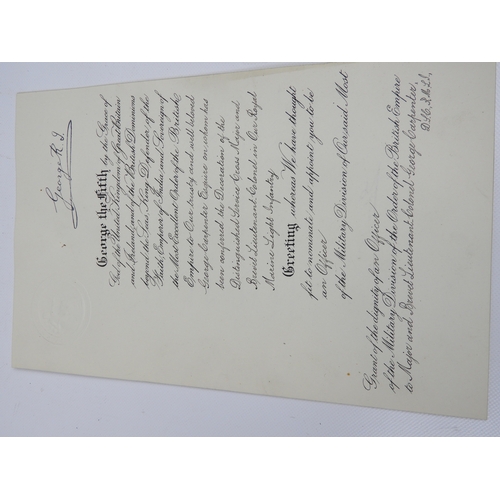 George R. I.
George the Fifth by the Grace of
God of the United Kingdom of Great Britain
and Ireland and of the British Dominions
beyond the Seas King Defender of the
Faith Emperor of India and Sovereign of
the Most Excellent Order of the British
Empire to Our trusty and well beloved
George Carpenter Esquire on whom has
been conferred the Decoration of the
Distinguished Service Cross Major and
Brevet Lieutenant Colonel in Our Royal
Marine Light Infantry
Greeting whereas We have thought
fit to nominate and appoint you to be
an Officer
of the Military Division of Our said Most
Grant of the dignity of an Officer
of the Military Division of the Order of the British Empire
to Major and Brevet Lieutenant Colonel George Carpenter,
D.S.C. R.M.L.I.